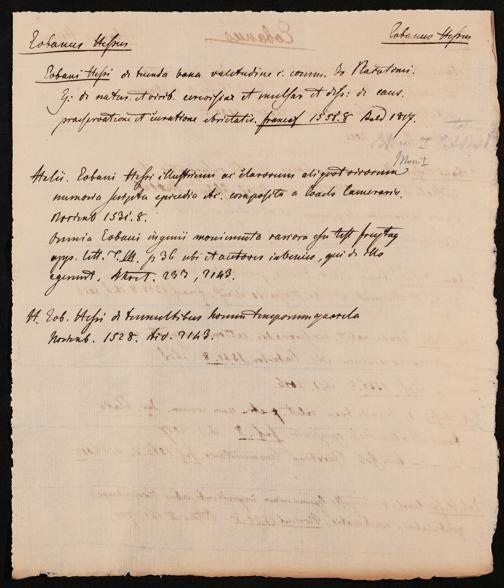 Eobanus Hessus
Eobanus Hessus
Eobani Hessi de tuenda bona valetudine c. comm. Jo Placotomi.
Ej. de natur. et virib. cerevisiae et mulsar et diss. de caus.
praeservatione et curatione ebrietatis. francof 1551. 8
Helii. Eobani Hessi illustrium ac clarorum aliquot virorum
memoriae scripta epicedia etc. composita a Camerario.
Norimb 1531. 8.
Omnia Eobani ingenii monimenta rariora esse test. freytag
app. litt. T. III. p 36 ubi et autores invenies, qui de illo
egerunt. 233, 7143.
H. Eob. Hessi de tumultibus horum temporum querela
Norimb. 1528. 7143.